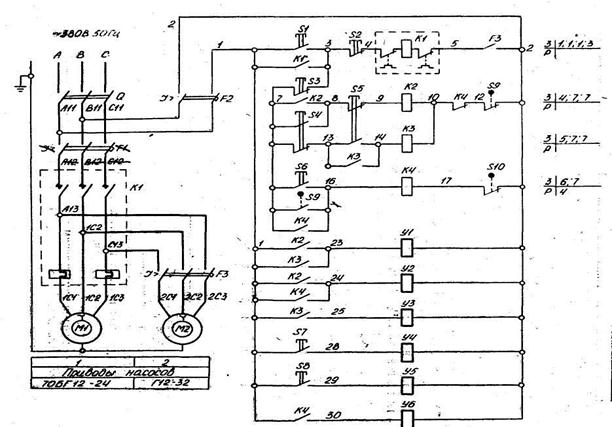 2
~380В 50Гц
A B C
1
Q
A11 B11 C11
F2
F1
A12 B12 C12
K1
A13
1C2
C13
F3
1C1 1C2 1C3
2C1 3C2 2C3
M1
M2
1 2
Приводы насосов
Г12-32
S1
3
S2
4
K1
5
F3
2
K1
3 1,1;1;3
Р
S3
7
K2
8
S5
9
K2
10
K4
12
S9
3 4;7;7
Р
S4
13
14
K3
K3
3 5;7;7
Р
S6
16
K4
17
S10
3 6;7
Р 4
S9
K4
1
K2
23
У1
K3
K2
24
У2
K4
K3
25
У3
S7
28
У4
S8
29
У5
K4
30
У6